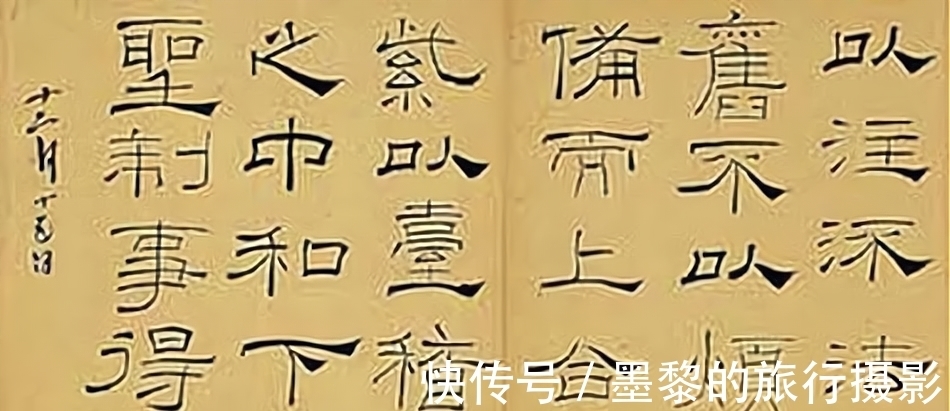 以注深法
舊不以煩
備而上合
紫以臺稽
之中和下
聖制事得
月十五日
快传号/墨黎的旅行摄影